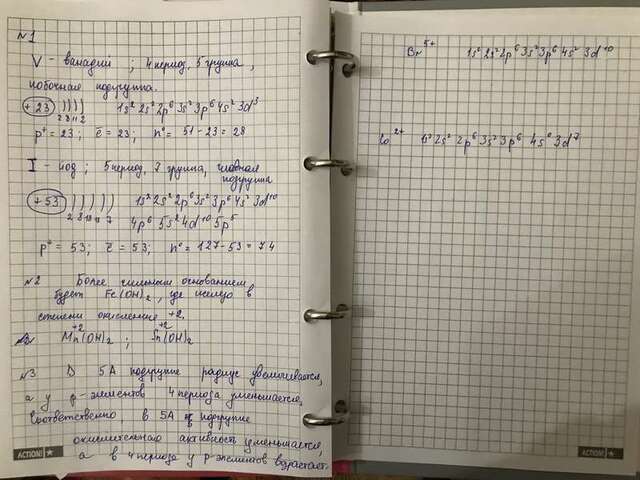 N1
V - ванадий ; 4 период, 5 группа,
побочная подгруппа.
+23 ) ) ) ) 1s² 2s² 2p⁶ 3s² 3p⁶ 4s² 3d³
2 8 11 2
p⁺ = 23; ē = 23; n⁰ = 51-23 = 28
I - йод; 5 период, 7 группа, главная
подгруппа
+53 ) ) ) ) ) 1s² 2s² 2p⁶ 3s² 3p⁶ 4s² 3d¹⁰
2 8 18 18 7 4p⁶ 5s² 4d¹⁰ 5p⁵
p⁺ = 53; ē = 53; n⁰ = 127-53 = 74
N2 Более сильными основаниями
будут Fe(OH)₂, где железо в
степени окисления +2.
Mn⁺²(OH)₂ ; Sn⁺²(OH)₂
N3 В 5А подгруппе радиус увеличивается,
а у р-элементов 4 периода уменьшается,
Соответственно, в 5А подгруппе
окислительная активность уменьшается,
а в 4 периоде у р-элементов возрастает.
Br⁵⁺ 1s² 2s² 2p⁶ 3s² 3p⁶ 4s² 3d¹⁰
Co²⁺ 1s² 2s² 2p⁶ 3s² 3p⁶ 4s⁰ 3d⁷